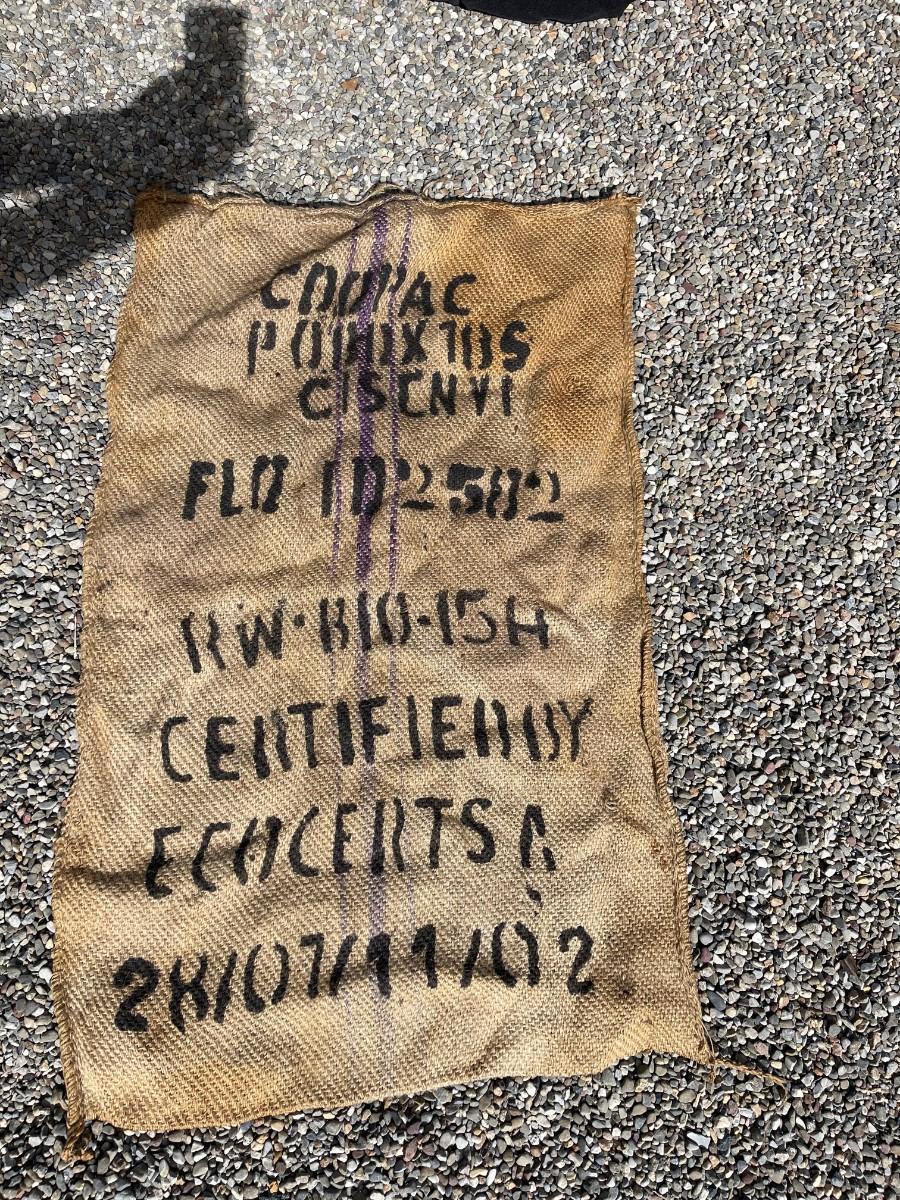 COOPAC
P.O BOX 10S
CISENYI
FLO ID 2582
RW-BIO-154
CERTIFIED BY
ECOCERT S A
28/07/11/02